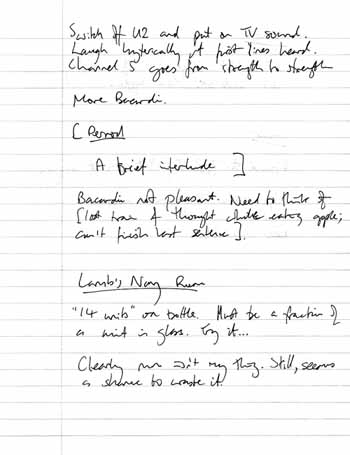 Switch off U2 and put on TV sound.
Laugh hysterically at first lines heard.
Channel 5 goes from strength to strength
More Bacardi.
[ Period
A brief interlude ]
Bacardi not pleasant. Need to think of
[lost train of thought whilst eating apple;
can't finish last sentence].
Lamb's Navy Rum
"14 units" on bottle. Must be a fraction of
a unit in glass. Try it...
Clearly rum isn't my thing. Still, seems
a shame to waste it.